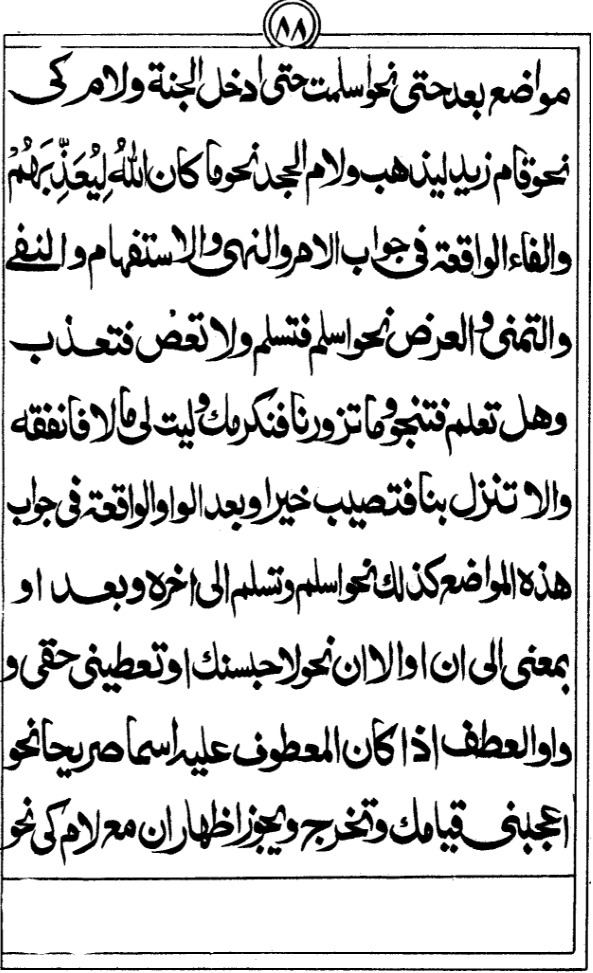 ٨٨
مواضع بعد حتى نحو اسلمت حتى ادخل الجنة ولام كى
نحو قام زيد ليذهب ولام الجحد نحو ما كان اللهُ لِيُعَذِّبَهُمْ
والفاء الواقعة فى جواب الامر والنهى والاستفهام والنفے
والتمنى والعرض نحو اسلم فتسلم ولا تعص فتعذب
وهل تعلم فتنجو وما تزورنا فنكرمك وليت لى مالا فانفقه
والا تنزل بنا فتصيب خيرا وبعد الواو الواقعة فى جواب
هذه المواضع كذلك نحو اسلم وتسلم الى اخره وبعد او
بمعنى الى ان او الا ان نحو لاحبسنك او تعطينى حقى و
واو العطف اذا كان المعطوف عليه اسما صريحا نحو
اعجبنى قيامك وتخرج ويجوز اظهار ان مع لام كى نحو